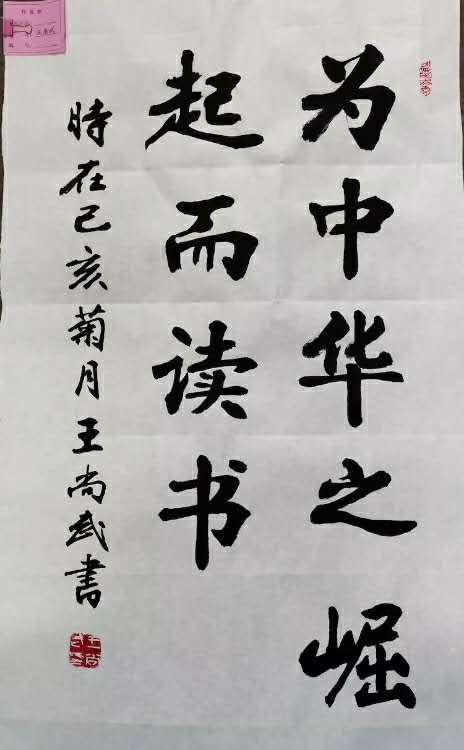 为中华之崛
起而读书
時在己亥菊月王尚武書